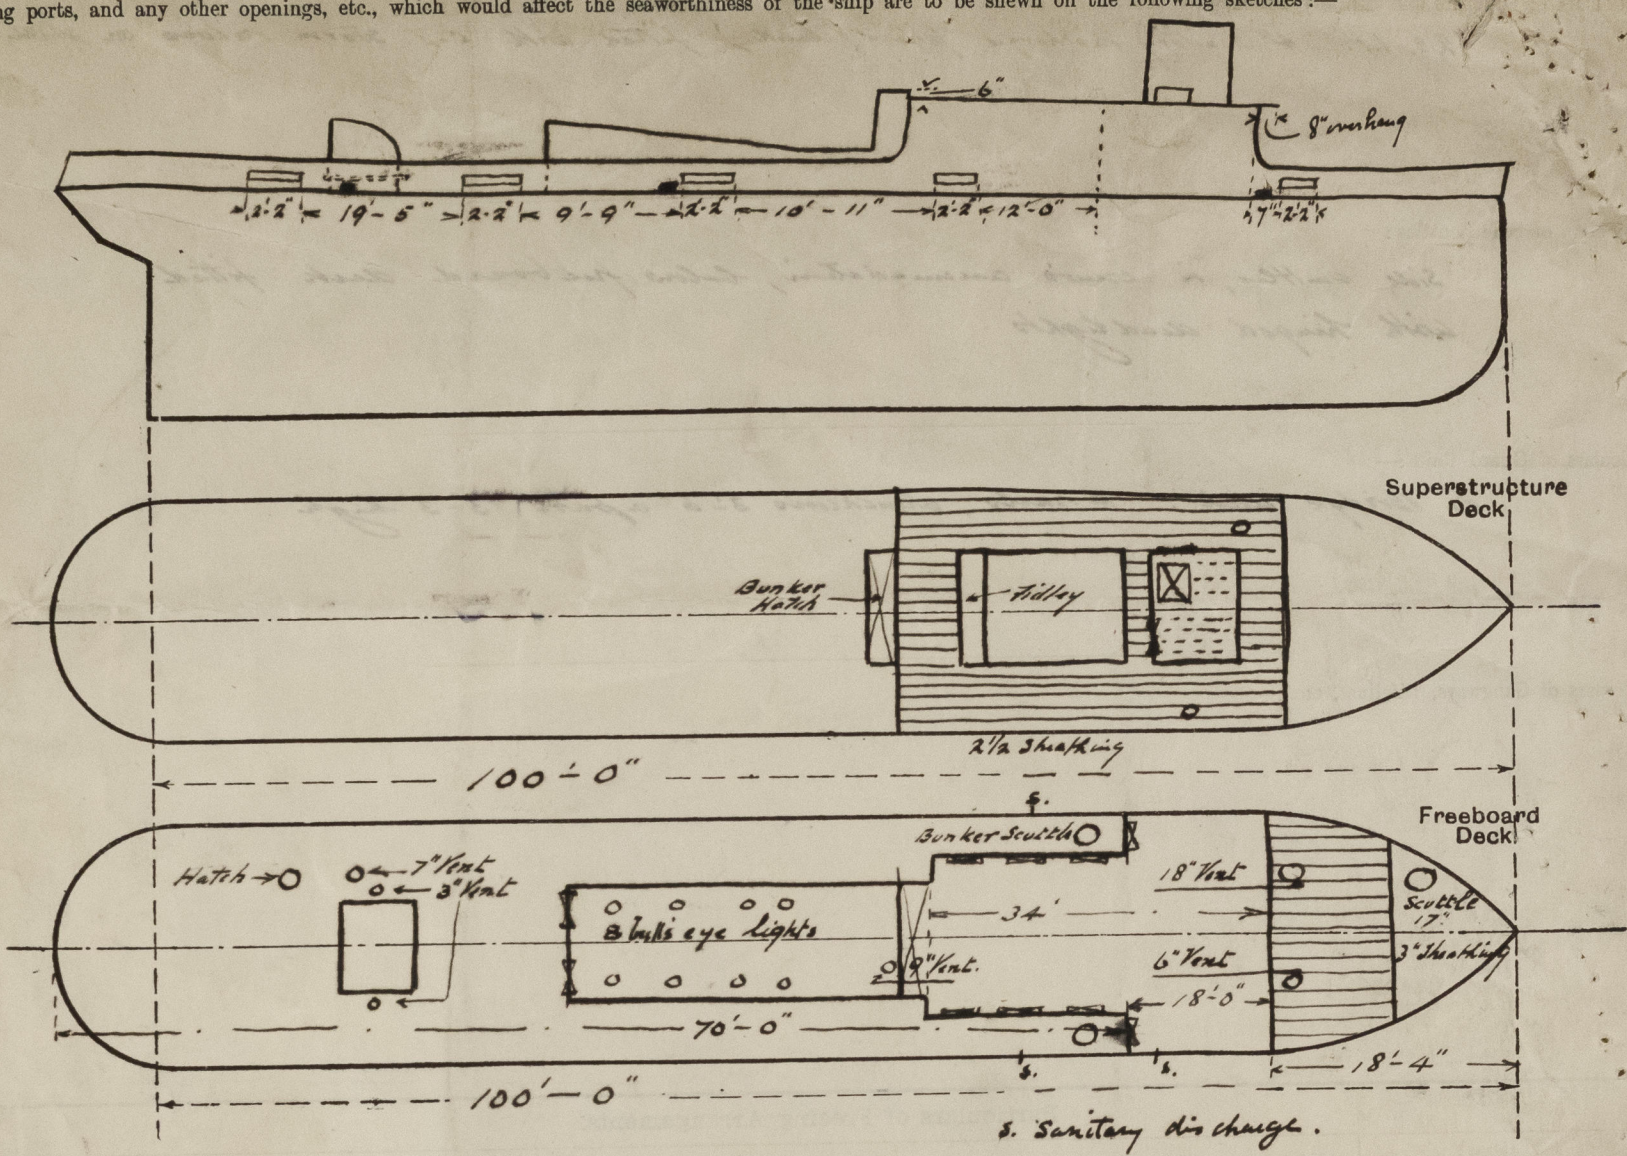 ng ports, and any other openings, etc., which would affect the seaworthiness of the ship are to be shewn on the following sketches:—
6"
8" overhang
2'-2" 19'-5" 2'-2" 9'-9" 2'-2" 10'-11" 2'-2" 12'-0" 7" 2'-2"
Superstructure
Deck
Bunker
Hatch
Fidley
2 1/2 Sheathing
100'-0"
s.
Freeboard
Deck
Bunker Scuttle
Hatch
7" Vent
3" Vent
18" Vent
Scuttle
17"
34'
8 bull's eye lights
9" Vent.
6" Vent
3" Sheathing
18'-0"
70'-0"
s. s.
18'-4"
100'-0"
s. Sanitary discharge.